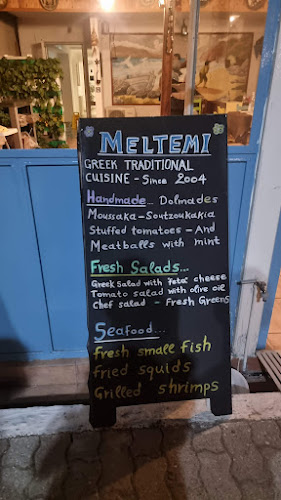 MELTEMI
GREEK TRADITIONAL
CUISINE - Since 2004
Handmade... Dolmades
Moussaka - Soutzoukakia
Stuffed tomatoes - And
Meatballs with mint
Fresh Salads...
Greek Salad with feta cheese
Tomato salad with olive oil
Chef salad - Fresh Greens
Seafood...
fresh small fish
fried squids
Grilled shrimps